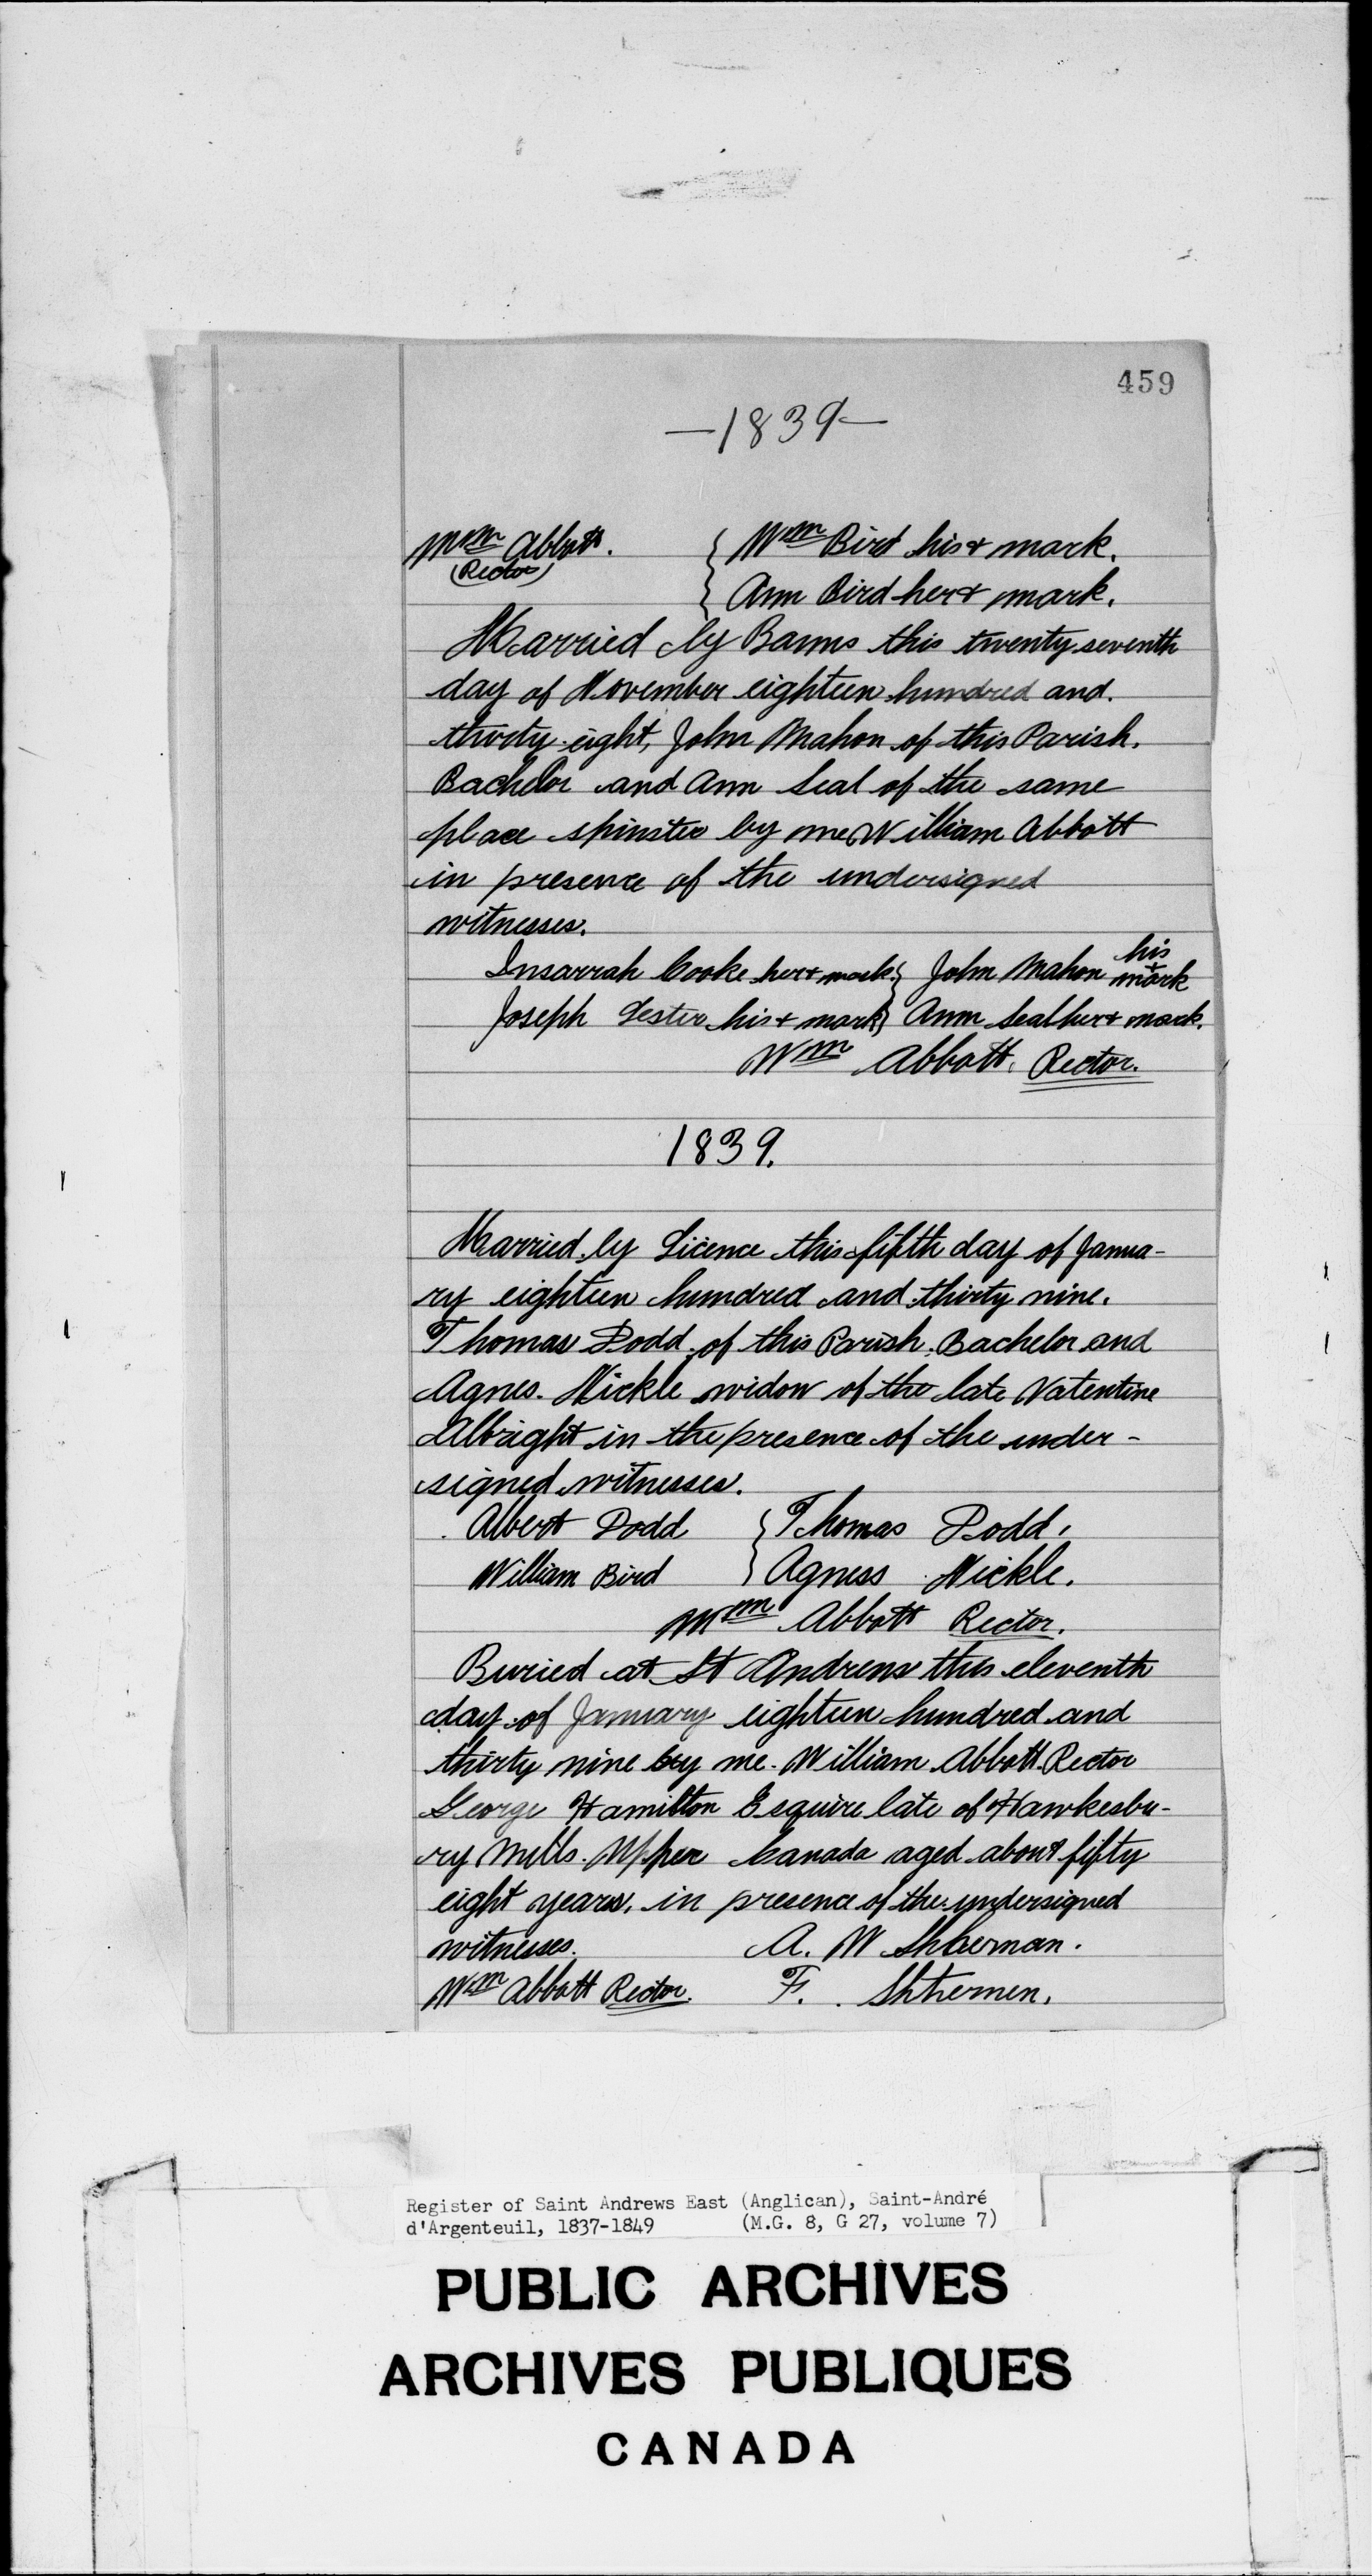 459
—1839—
Wm Abbott. { Wm Bird his + mark.
(Rector) { Ann Bird her + mark.
Married by Banns this twenty seventh
day of November eighteen hundred and.
thirty eight, John Mahon of this Parish.
Bachelor and Ann Seal of the same
place spinster by me William Abbott
in presence of the undersigned
witnesses.
Insarrah Cooke her + mark. { John Mahon his + mark
Joseph Lester his + mark } Ann Seal her + mark.
Wm Abbott. Rector.
1839.
Married by Licence this fifth day of Janua-
ry eighteen hundred and thirty nine.
Thomas Dodd of this Parish. Bachelor and
Agnes. Nickle widow of the late Valentine
Albright in the presence of the under-
signed witnesses.
Albert Dodd { Thomas Dodd.
William Bird } Agness Nickle.
Wm Abbott Rector.
Buried at St Andrews this eleventh
day of January eighteen hundred and
thirty nine by me. William Abbott. Rector
George Hamilton Esquire late of Hawkesbu-
ry Mills. Upper Canada aged about fifty
eight years, in presence of the undersigned
witnesses. A. W Shherman.
Wm Abbott Rector. F. Shhermen.
Register of Saint Andrews East (Anglican), Saint-André
d'Argenteuil, 1837-1849 (M.G. 8, G 27, volume 7)
PUBLIC ARCHIVES
ARCHIVES PUBLIQUES
CANADA